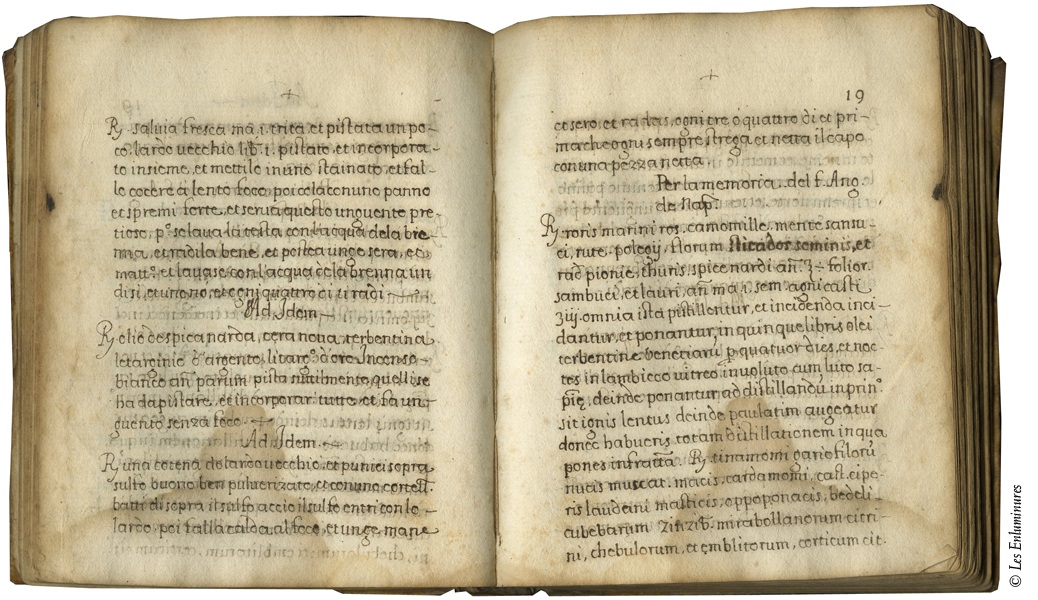 +
℞ salvia fresca ma. i. trita, et pistata un po-
co. lardo vecchio lib. i. pistato, et incorpora-
to insieme, et mettilo in uno stainato, et fal-
lo cocere a lento foco, poi cola con uno panno
et spremi forte, et serva questo unguento pre-
tioso, p.ª se lava la testa con l'acqua de la bre-
nna, et radila bene, et postea unge sera, et
matt.ª et lavase con l'acqua de la brenna un
di si, et uno no, et ogni quattro di ti radi
Ad Idem
℞ olio de spica narda, cera nova, terbentina
letargirio d'argento, litargº d'oro Incenso
bianco añ parum pista suttilmente, quelli se
ha da pistare, et incorporar tutte, et fa un-
guento senza foco +
Ad Idem +
℞ una cotena de lardo vecchio, et punici sopra
sulfo buono ben pulverizato, et con uno cortell.
batti di sopra il sulfo accio il sulfo entri con lo
lardo, poi falla calda al foco, et unge mane
+
19
et sero, et radas, ogni tre o quattro di et pri-
ma che ogni sempre strega et netta il capo
con una pezza netta.
Per la memoria. del f. Ang.
de Nap.
℞ roris marini ros. camomille, mente sansu-
ci, rute, polegij, florum sticados seminis, et
rad pionie, thuris, spice nardi añ. ʒ folior.
sambuci, et lauri, añ ma i. sem. agni casti
ʒiij. omnia ista pistillentur, et incidenda inci-
dantur, et ponantur, in quinque libris olei
terbentine venetiaru p quatuor dies, et noc-
tes in lambicco vitreo involuto cum luto sa-
pię, deinde ponantur ad distillandu in prinº
sit ignis lentus deinde paulatim augeatur
donec habueris totam distillationem in qua
pones infratta. ℞ cinamomi gariofiloru
nucis muscat. macis, cardamomi, cast. eipe-
ris laudeni masticis, oppoponacis, bedeli
cubebarum zinzib. mirabollanorum citri-
ni, chebulorum, et emblitorum, corticum cit.
© Les Enluminures